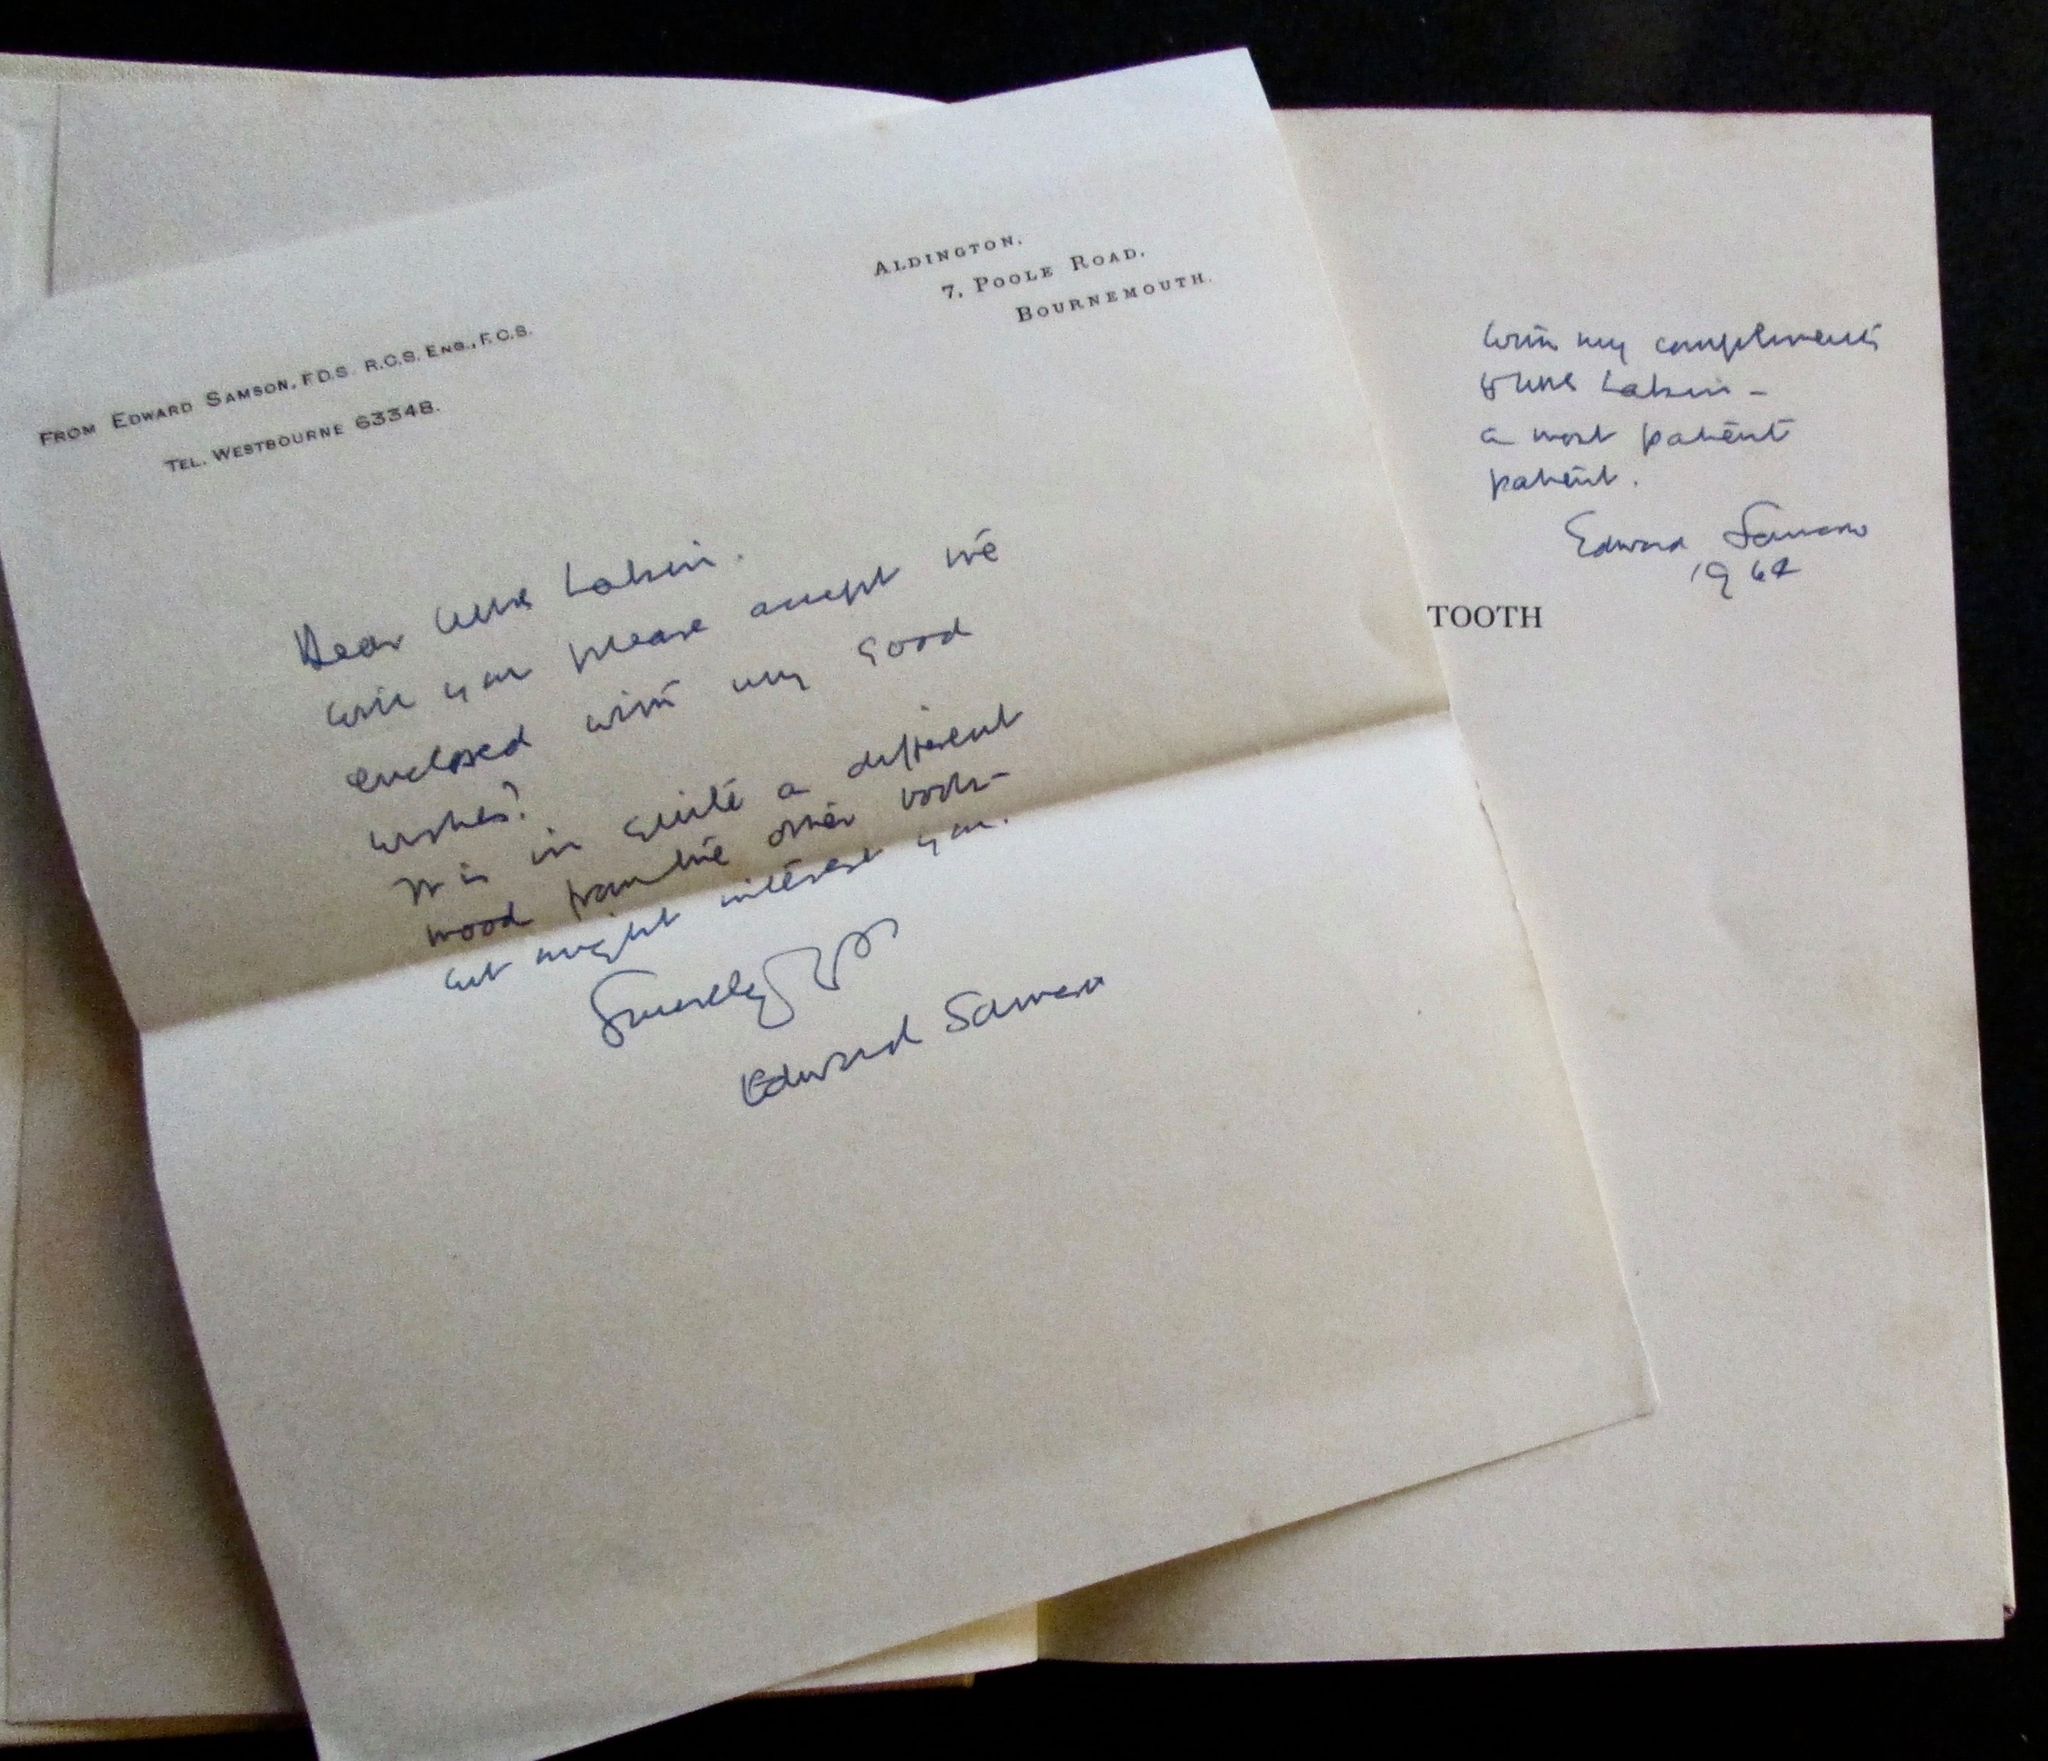 FROM EDWARD SAMSON, F.D.S. R.C.S. ENG., F.C.S.
TEL. WESTBOURNE 63348.
ALDINGTON,
7, POOLE ROAD,
BOURNEMOUTH.
Dear Miss Lakin.
Will you please accept the
enclosed with my good
wishes?
It is in quite a different
mood from the other book –
but might interest you.
Sincerely
Edward Samson
With my compliments
to Miss Lakin –
a most patient
patient.
Edward Samson
1962
TOOTH